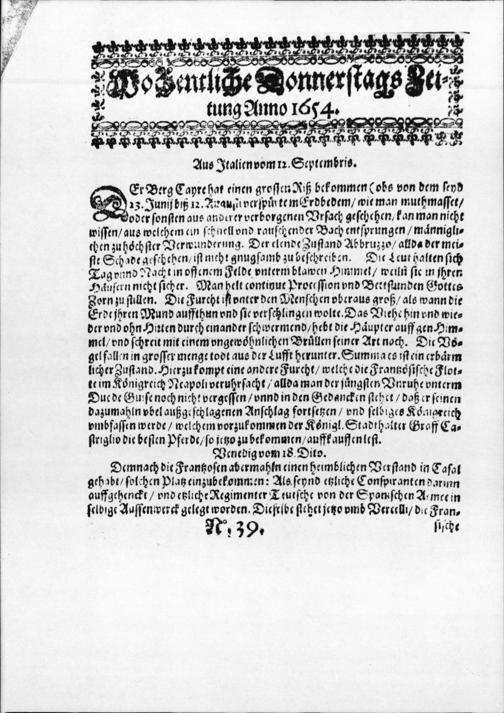 Wochentliche Donnerstags Zei-
tung Anno 1654.
Aus Italien vom 12. Septembris.
DEr Berg Cayre hat einen grossen Riß bekommen (obs von dem seyd
23. Junij biß 12. Augusti verspürtem Erdbedem/ wie man muthmasset/
oder sonsten aus anderer verborgenen Vrsach geschehen/ kan man nicht
wissen/ aus welchem ein schnell vnd rauschender Bach entsprungen/ männigli-
chen zu höchster Verwunderung. Der elende Zustand Abbruzzo/ allda der mei-
ste Schade geschehen/ ist nicht gnugsamb zu beschreiben. Die Leut halten sich
Tag vnnd Nacht in offenem Felde vnterm blawen Himmel/ weiln sie in jhren
Häusern nicht sicher. Man helt continue Procession vnd Bettstunden Gottes
Zorn zu stillen. Die Furcht ist vnter den Menschen oberaus groß/ als wann die
Erde jhren Mund auffthun vnd sie verschlingen wolte. Das Viehe hin vnd wie-
der vnd ohn Hirten durch einander schwermend/ hebt die Häupter auff gen Him-
mel/ vnd schreit mit einem vngewöhnlichen Brüllen seiner Art nach. Die Vö-
gel fallen in grosser menge todt aus der Lufft herunter. Summa es ist ein erbärm
licher Zustand. Hierzu kompt eine andere Furcht/ welche die Frantzösische Flot-
te im Königreich Neapoli veruhrsacht/ allda man der jüngsten Vnruhe vnterm
Duc de Guise noch nicht vergessen/ vnnd in den Gedancken stehet/ daß er seinen
dazumahln vbel außgeschlagenen Anschlag fortsetzen/ vnd selbiges Königreich
vmbfassen werde/ welchem vorzukommen der Königl. Stadthalter Graff Ca-
striglio die besten Pferde/ so jetzo zu bekommen/ auffkauffen lest.
Venedig vom 18. Dito.
Demnach die Frantzosen abermahln einen heimblichen Verstand in Casal
gehabt/ solchen Platz einzubekommen: Als seynd etzliche Conspiranten darinn
auffgehenckt/ vnd etzliche Regimenter Teutsche von der Spanischen Armee in
selbige Aussenwerck gelegt worden. Dieselbe stehet jetzo vmb Vercelli/ die Fran-
N°. 39. sische